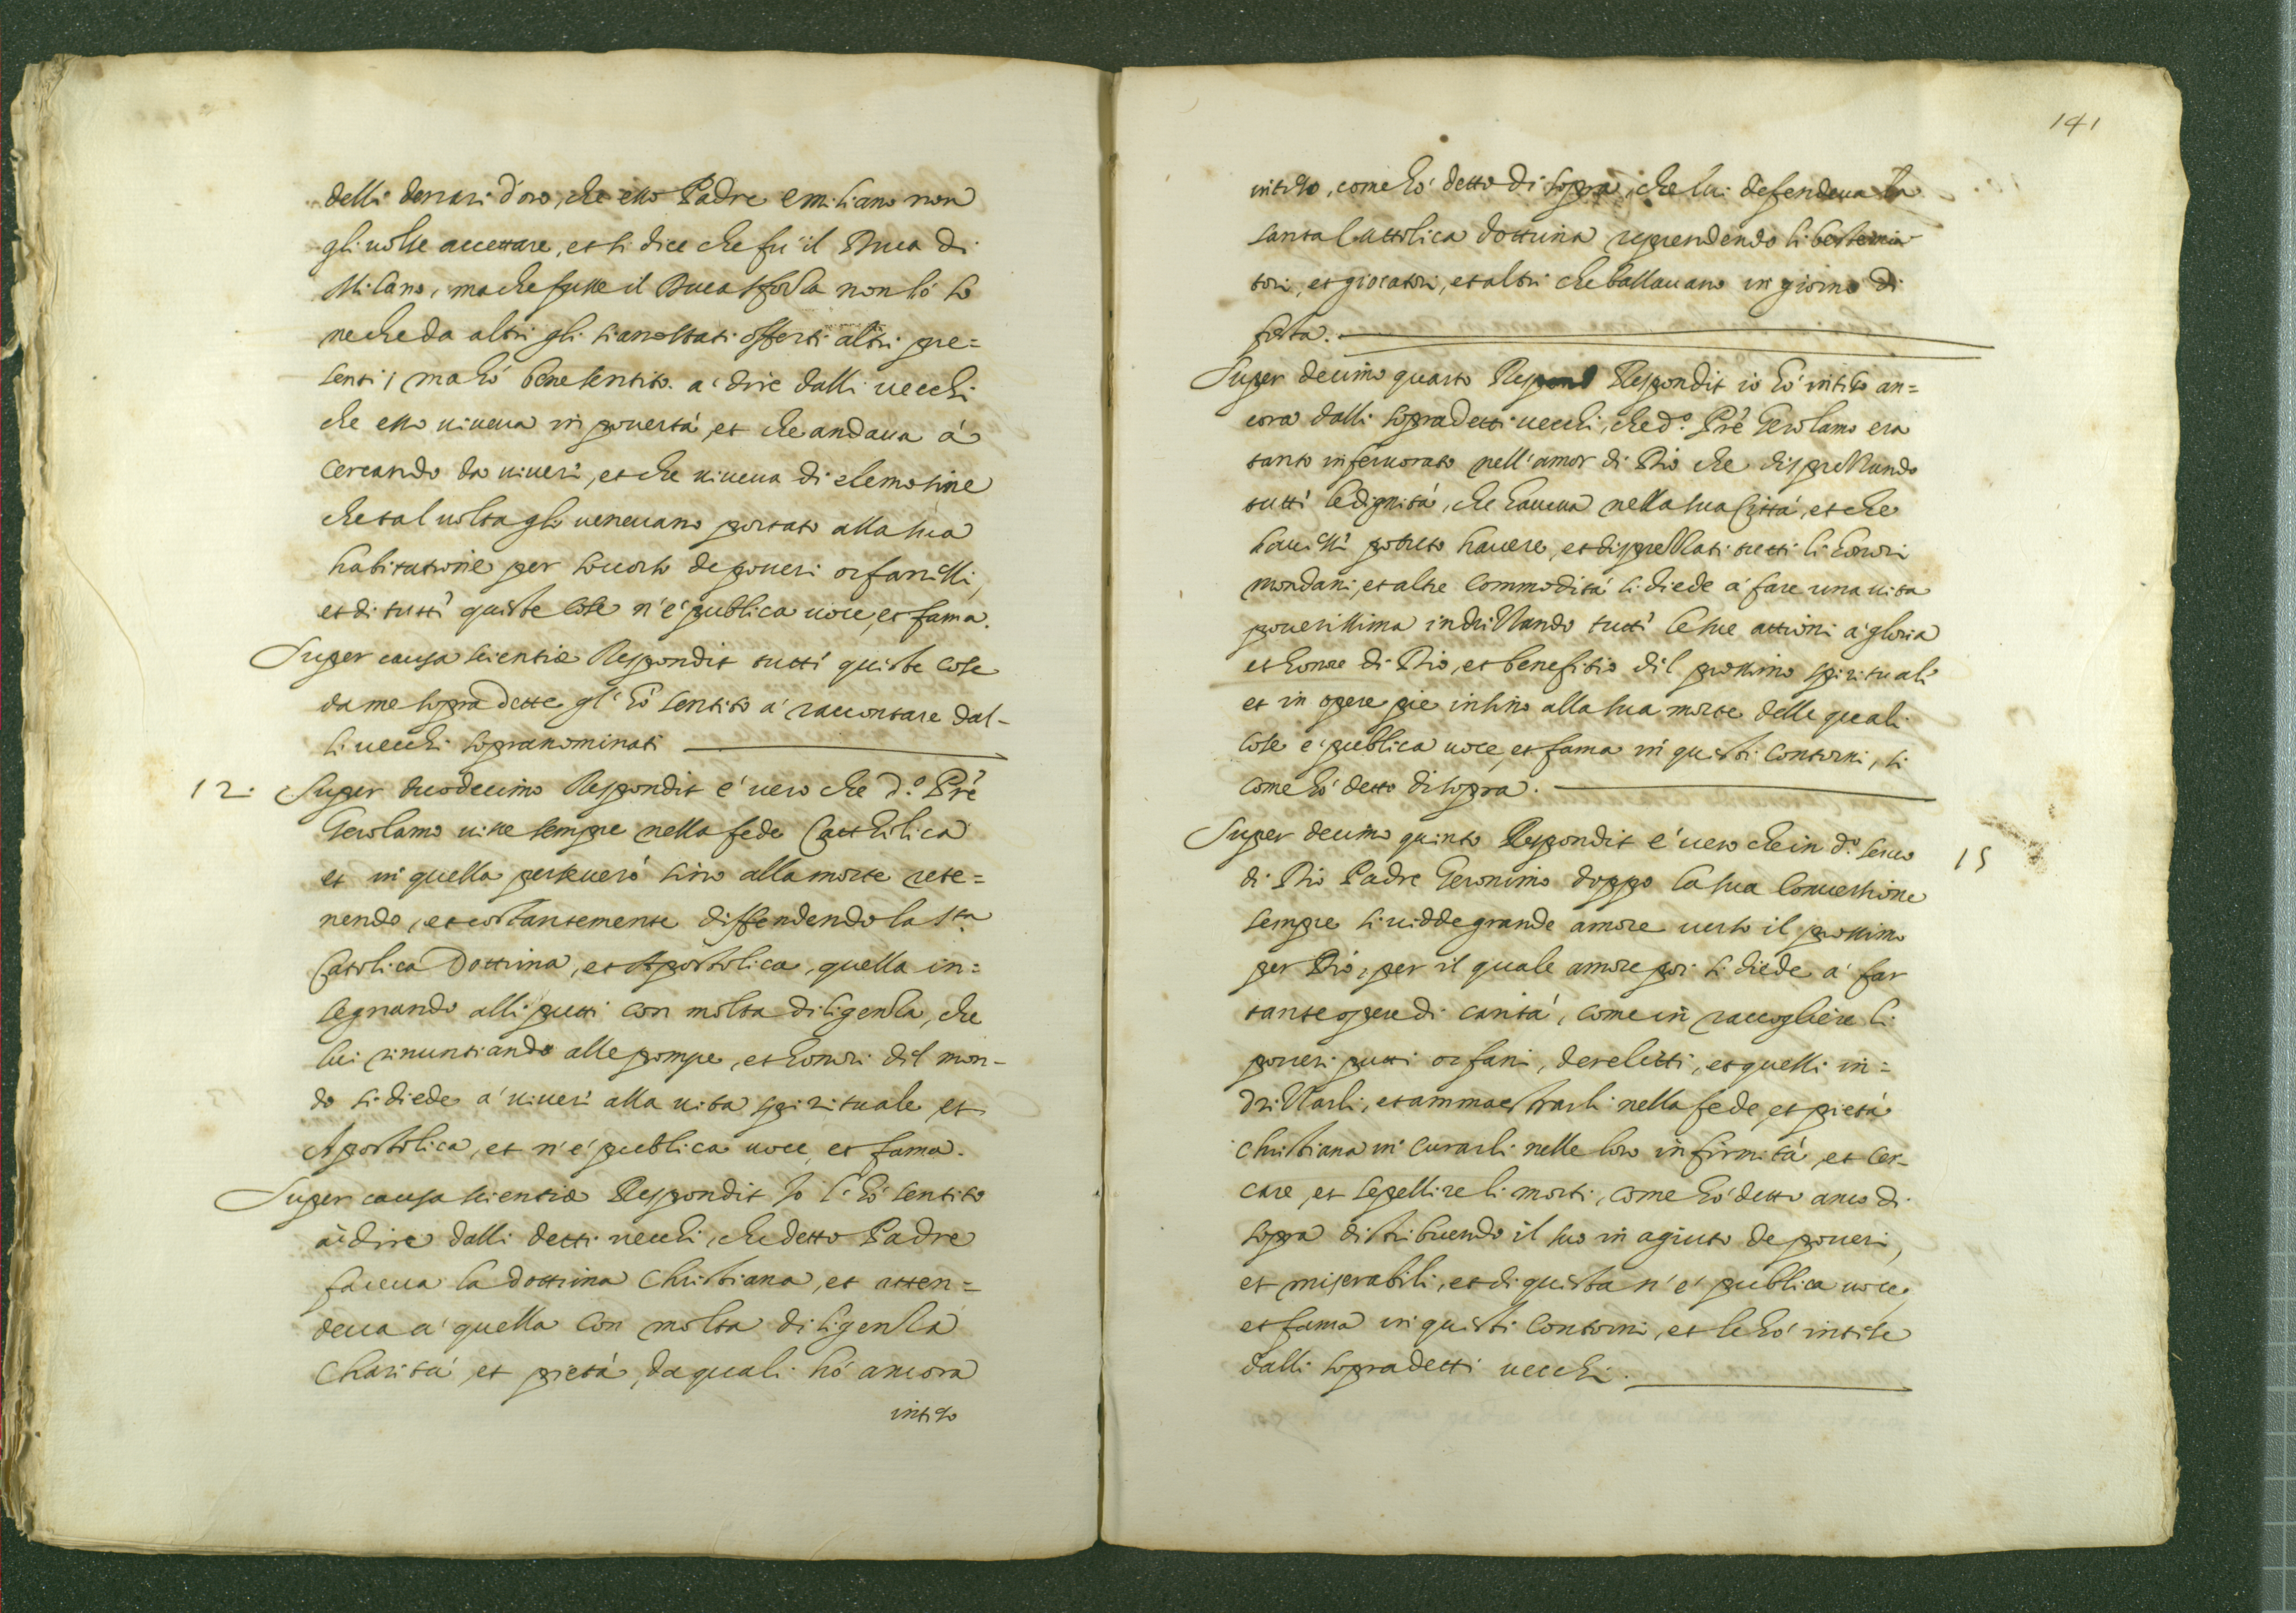 delli denari d'oro, che esso Padre emiliano non
gli volse accettare, et si dice che fu il Duca di
Milano, ma che fusse il Duca sforza non lo so
ne che da altri gli siano stati offerti altri pre=
senti, ma hò bene sentito a' dire dalli vecchi
che esso viveva in povertà, et che andava à
cercando da viveri, et che viveva di elemosine
che tal volta gli venevano portato alla sua
habitatione per socorso de poveri orfanelli,
et di tutti queste cose n'è publica voce, et fama.
Super causa scientiæ Respondit tutti queste cose
da me sopra dette gl'hò sentito a' raccontare dal-
li vecchi sopranominati
12. Super duodecimo Respondit e' vero che d.º Prê
Gerolamo visse sempre nella fede Catthilica
et in quella perseverò sino alla morte rete=
nendo, et costantemente diffendendo la s.ta
Catolica Dottrina, et Apostolica, quella in=
segnando alli putti con molta diligenza, che
lui rinuntiando alle pompe, et honori dil mon-
do si diede a' viveri alla vita spirituale et
Apostolica, et n'è publica voce, et fama.
Super causa scientiæ Respondit Io l'hò sentito
a' dire dalli detti vecchi, che detto Padre
faceva la dottrina Christiana, et atten=
deva a' quella con molta diligenza
Charità, et pietà, da quali hò ancora
intiso
141
intiso, come hò detto di sopra, che lui defendeva la
santa Cattolica dottrina reprendendo li bestemia
tori, et giocatori, et altri che ballavano in giorno di
festa.
Super decimo quarto Respond Respondit io hò intiso an=
cora dalli sopradetti vecchi, che d.º Prê Gerolamo era
tanto infervorato nell'amor di Dio che disprezzando
tutti le dignità, che haveva nella sua Città, et che
havessi potuto havere, et disprezzati tutti li honori
mondani, et altre commodità si diede a' fare una vita
poverissima indrizzando tutti le sue attioni a' gloria
et honore di Dio, et benefitio dil prossimo spirituali
et in opere pie insino alla sua morte delle quali
cose e' publica voce, et fama in questi contorni, si
come hò detto di sopra.
Super decimo quinto Respondit e' vero che in d.º servo 15
di Dio Padre Geronimo doppo la sua Conversione
sempre si vidde grande amore verso il prossimo
per Dio, per il quale amore poi si diede a' far
tante opere di carità, come in raccogliere li
poveri putti orfani, derelitti, et quelli in=
drizzarli, et ammaestrarli nella fede, et pietà
christiana in curarli nelle loro infirmità, et cer-
care, et sepellire li morti, come hò detto anco di
sopra distribuendo il suo in agiuto de poveri,
et miserabili, et di questa n'è publica voce,
et fama in questi contorni, et le hò intise
dalli sopradetti vecchi.